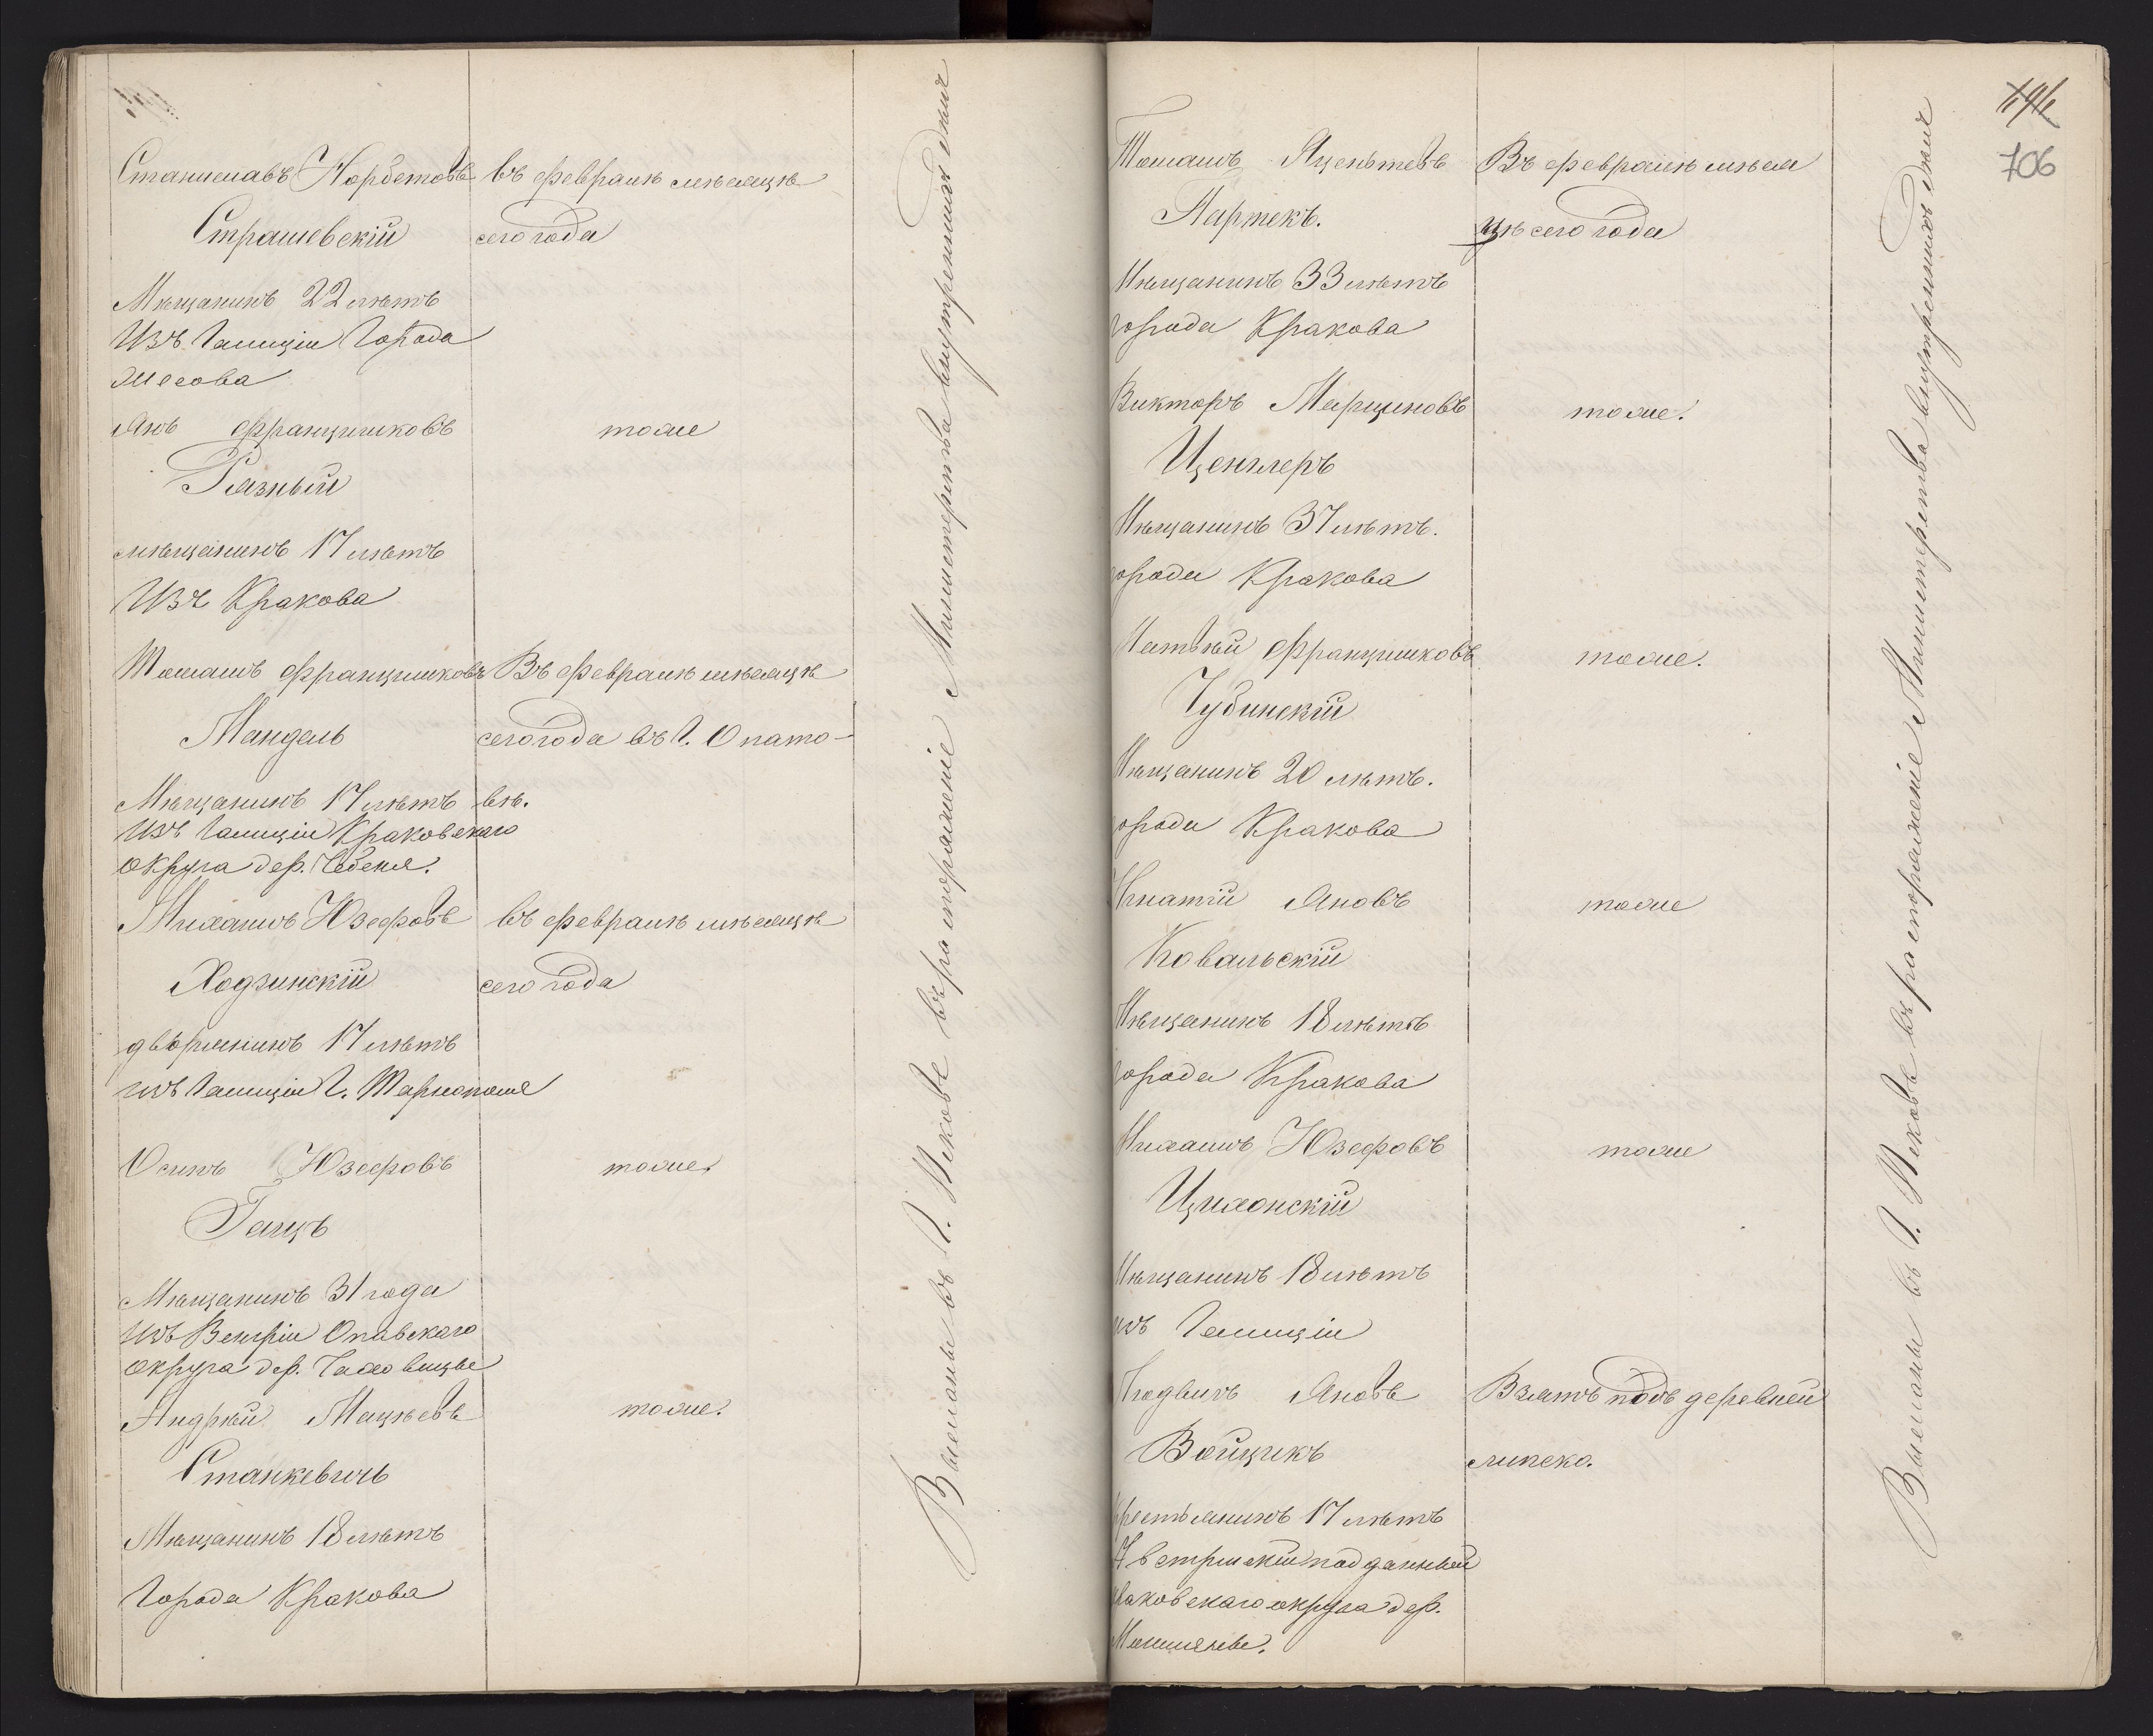 Станиславъ Норбетовъ въ февралѣ мѣсяцѣ
Страшевскій сего года
Мѣщанинъ 22 лѣтъ
Изъ Галиціи Города
Яну Францишковъ тоже
Рязный
мѣщанинъ 17 лѣтъ
Изъ Кракова
Томашъ Францишковъ Въ февралѣ мѣсяцѣ
Мандель сего года въ г. Опато-
Мѣщанинъ 17 лѣтъ вѣ.
Изъ Галиціи Краковскаго
округа дер.
Михаилъ Юзефовъ въ февралѣ мѣсяцѣ
Ходзинскій сего года
дворянинъ 17 лѣтъ
изъ Галиціи г. Тарнополя
Осипъ Юзефовъ тоже.
Ганцъ
Мѣщанинъ 31 года
Изъ Венгріи Опавскаго
округа дер.
Андрѣй Мацѣевъ тоже.
Станкевичъ
Мѣщанинъ 18 лѣтъ
Города Кракова
Высланы въ г. въ распоряженіе Министерства внутреннихъ дѣлъ
706
Томашъ Яцентовъ Въ февралѣ мѣся
Партекъ. цѣ сего года
Мѣщанинъ 33 лѣтъ
города Кракова
Викторъ Марциновъ тоже.
Ценглеръ
Мѣщанинъ 37 лѣтъ.
города Кракова
Матвѣй Францишковъ тоже.
Чубинскій
Мѣщанинъ 20 лѣтъ.
города Кракова
Игнатій Яновъ тоже
Ковальскій
Мѣщанинъ 18 лѣтъ
города Кракова
Михаилъ Юзефовъ тоже
Цихонскій
Мѣщанинъ 18 лѣтъ
изъ Галиціи
Людвигъ Яновъ Взятъ подъ деревней
Войцикъ Липско.
Крестьянинъ 17 лѣтъ
Австрійскій подданный
Краковскаго округа дер.
Высланы въ г. въ распоряженіе Министерства внутреннихъ дѣлъ